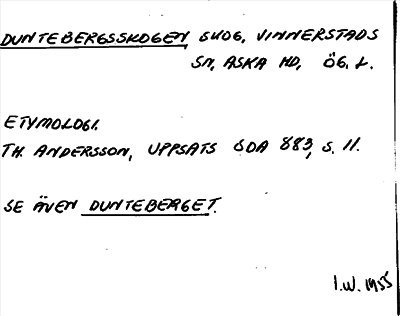 DUNTEBERGSSKOGEN, SKOG, VINNERSTADS
SN, ASKA HD, ÖG. L.
ETYMOLOGI.
TH. ANDERSSON, UPPSATS SOA 883, S. 11.
SE ÄVEN DUNTEBERGET.
I.W. 1955